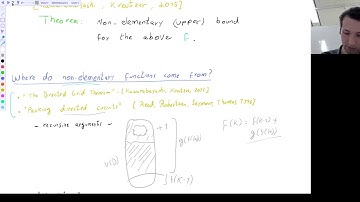 [Kawarabayashi, Kreutzer, 2015]
Theorem: Non-elementary (upper) bound
for the above F.
Where do non-elementary functions come from?
• "The Directed Grid Theorem" - [Kawarabayashi, Kreutzer, 2015]
• "Packing directed circuits" - [Reed, Robertson, Seymour, Thomas, 1996]
- recursive arguments -
+1
g(f(k))
f(k-1)
F(k) = f(k-1) +
g(f(k))